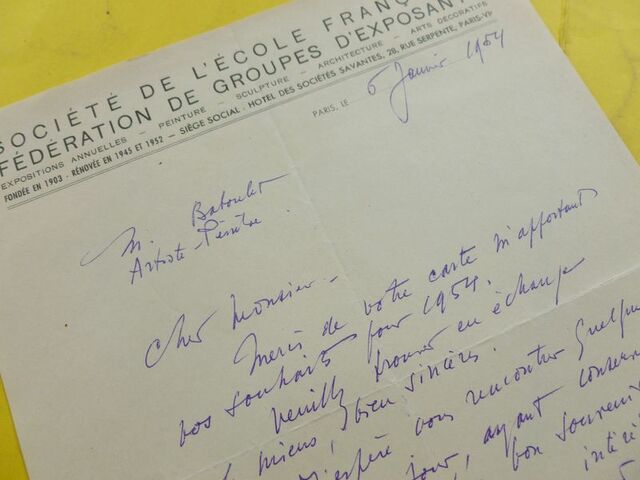 SOCIÉTÉ DE L'ÉCOLE FRANÇ
FÉDÉRATION DE GROUPES D'EXPOSANT
EXPOSITIONS ANNUELLES — PEINTURE — SCULPTURE — ARCHITECTURE — ARTS DÉCORATIFS
FONDÉE EN 1903 - RÉNOVÉE EN 1945 ET 1952 — SIÈGE SOCIAL : HOTEL DES SOCIÉTÉS SAVANTES, 28, RUE SERPENTE, PARIS-VIe
PARIS, LE 6 Janvier 1954
M.
Artiste Peintre
Cher Monsieur -
Merci de votre carte m'apportant
vos souhaits pour 1954.
Veuillez trouver en échange
miens, bien sincères.
J'espère vous rencontrer quelque
jour, ayant conservé
bon souvenir
intérê